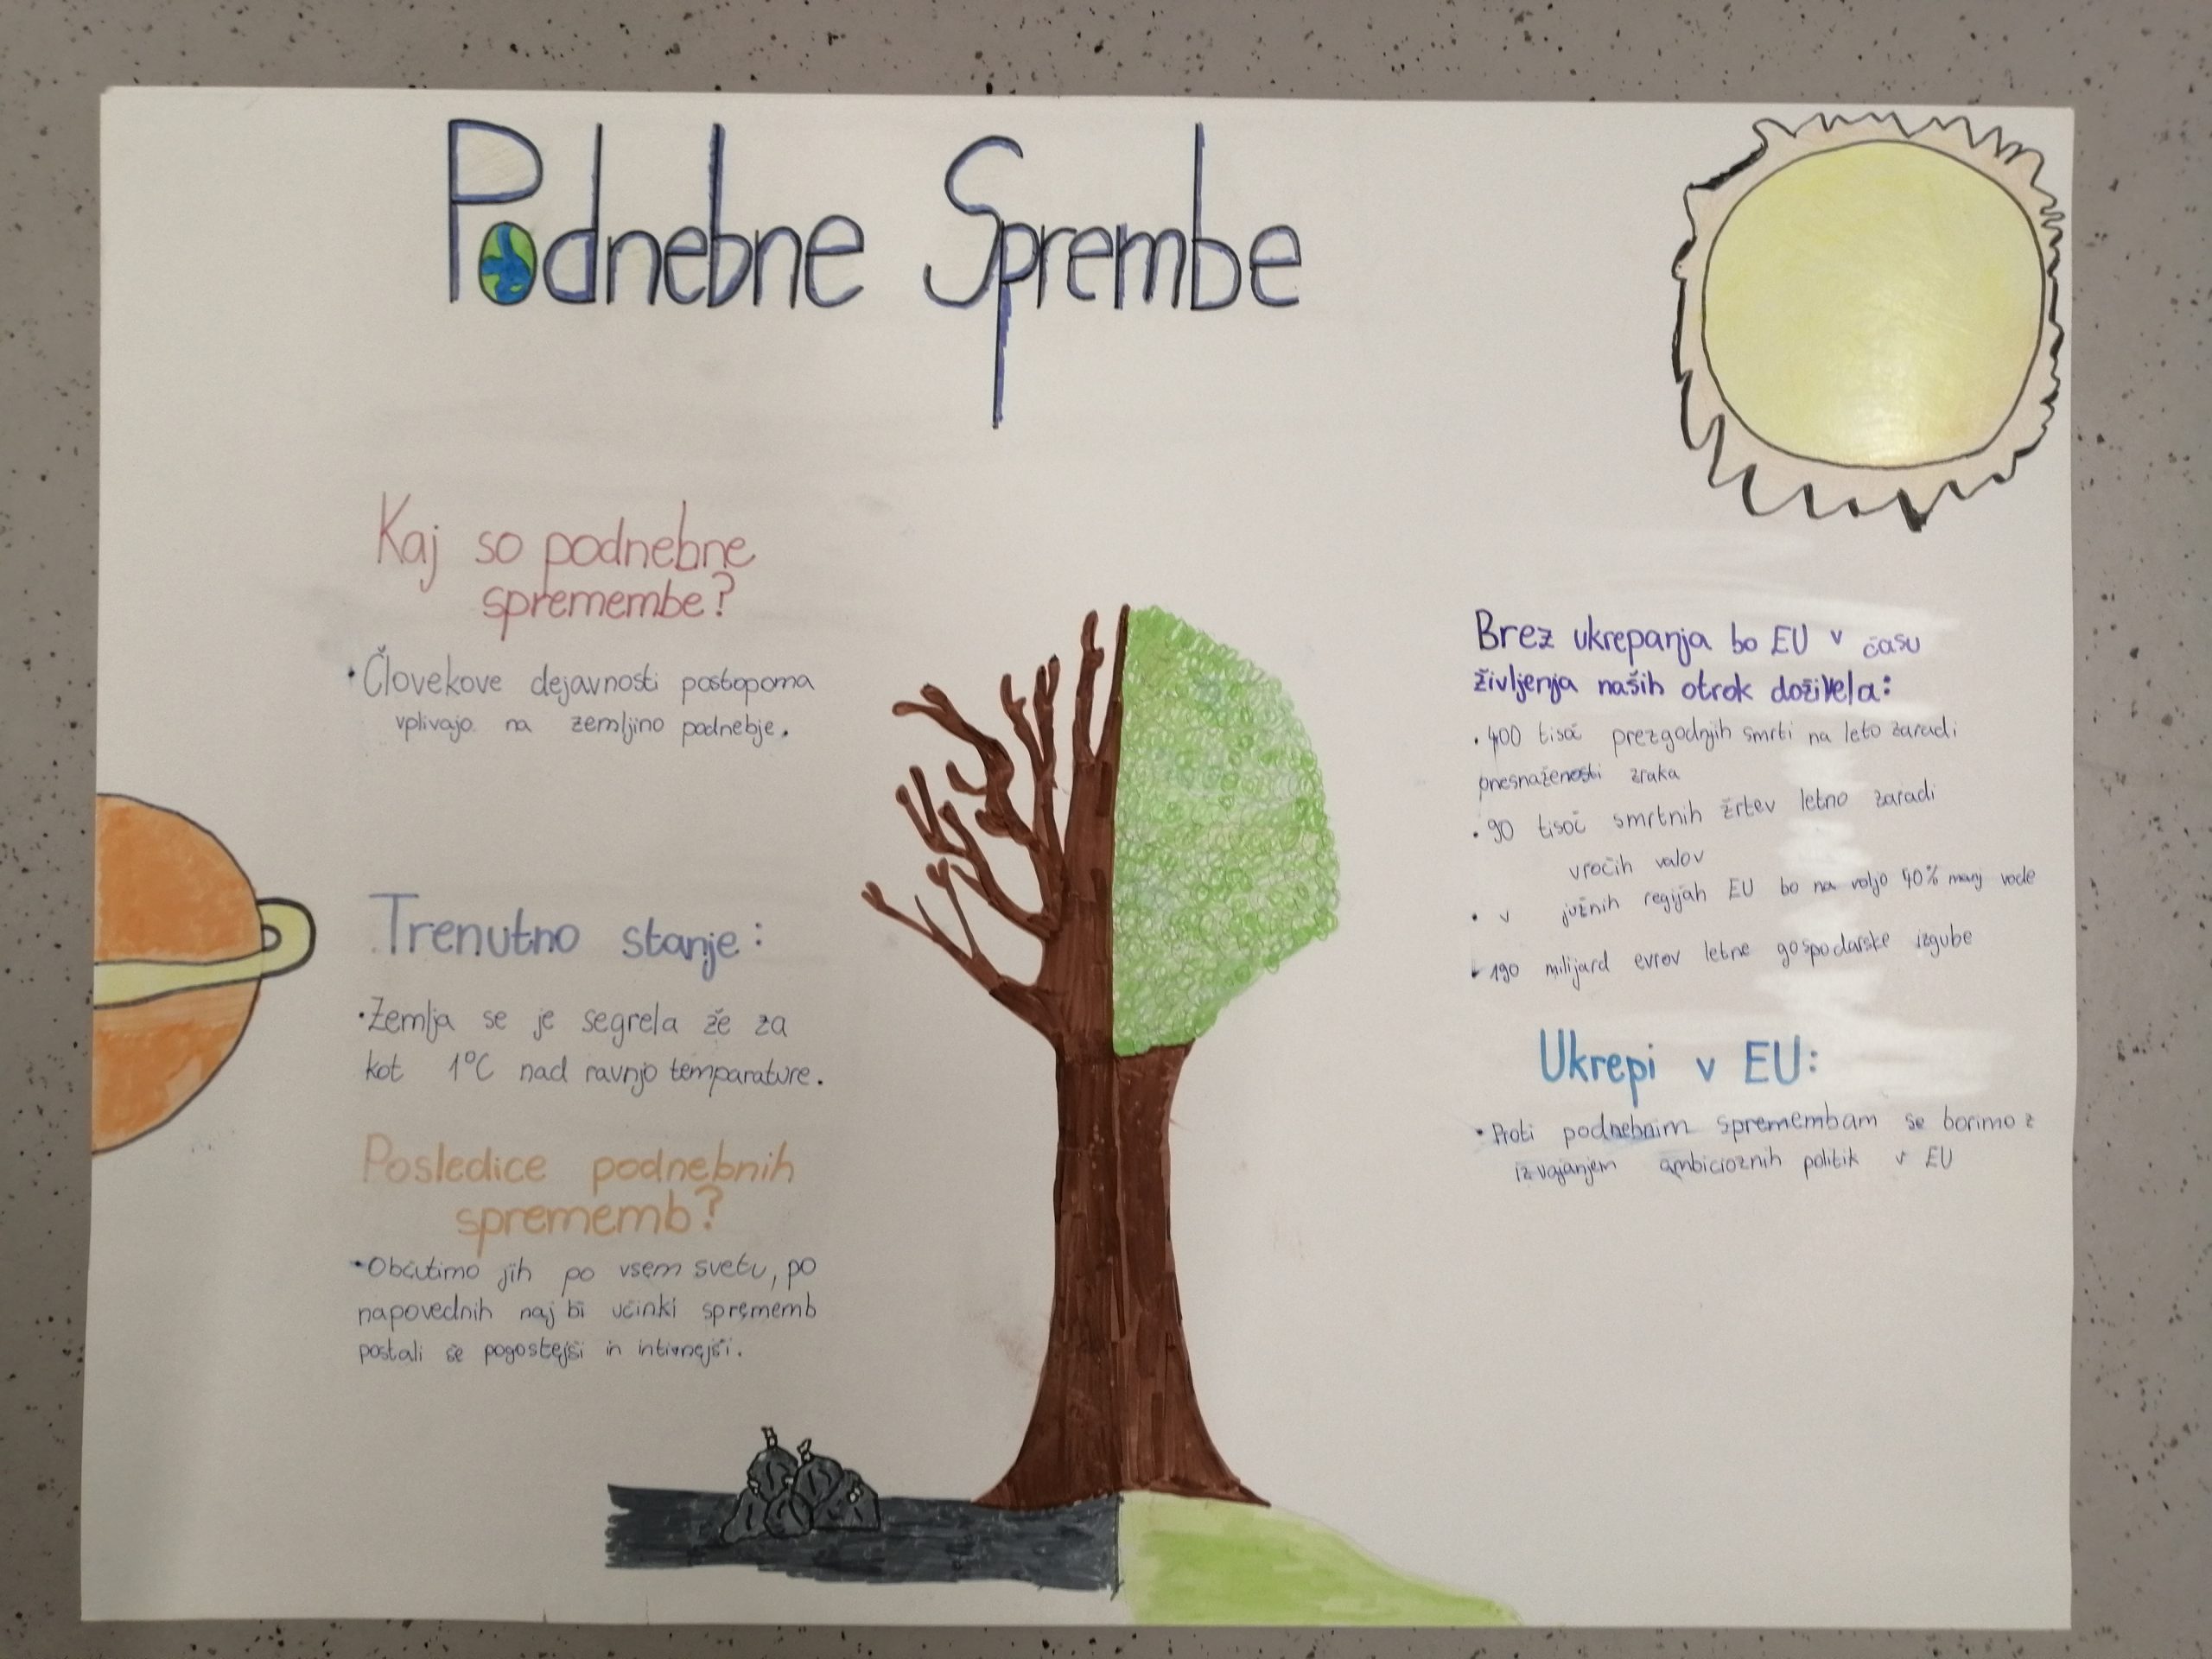 Podnebne Sprembe
Kaj so podnebne
spremembe?
• Človekove dejavnosti postopoma
vplivajo na zemljino podnebje.
Trenutno stanje:
• Zemlja se je segrela že za
kot 1°C nad ravnjo temparature.
Posledice podnebnih
sprememb?
• Občutimo jih po vsem svetu, po
napovednih naj bi učinki sprememb
postali še pogostejši in intivnejši.
Brez ukrepanja bo EU v času
življenja naših otrok doživela:
• 400 tisoč prezgodnjih smrti na leto zaradi
onesnaženosti zraka
• 90 tisoč smrtnih žrtev letno zaradi
vročih valov
• v južnih regijah EU bo na voljo 40% manj vode
• 190 milijard evrov letne gospodarske izgube
Ukrepi v EU:
• Proti podnebnim spremembam se borimo z
izvajanjem ambicioznih politik v EU